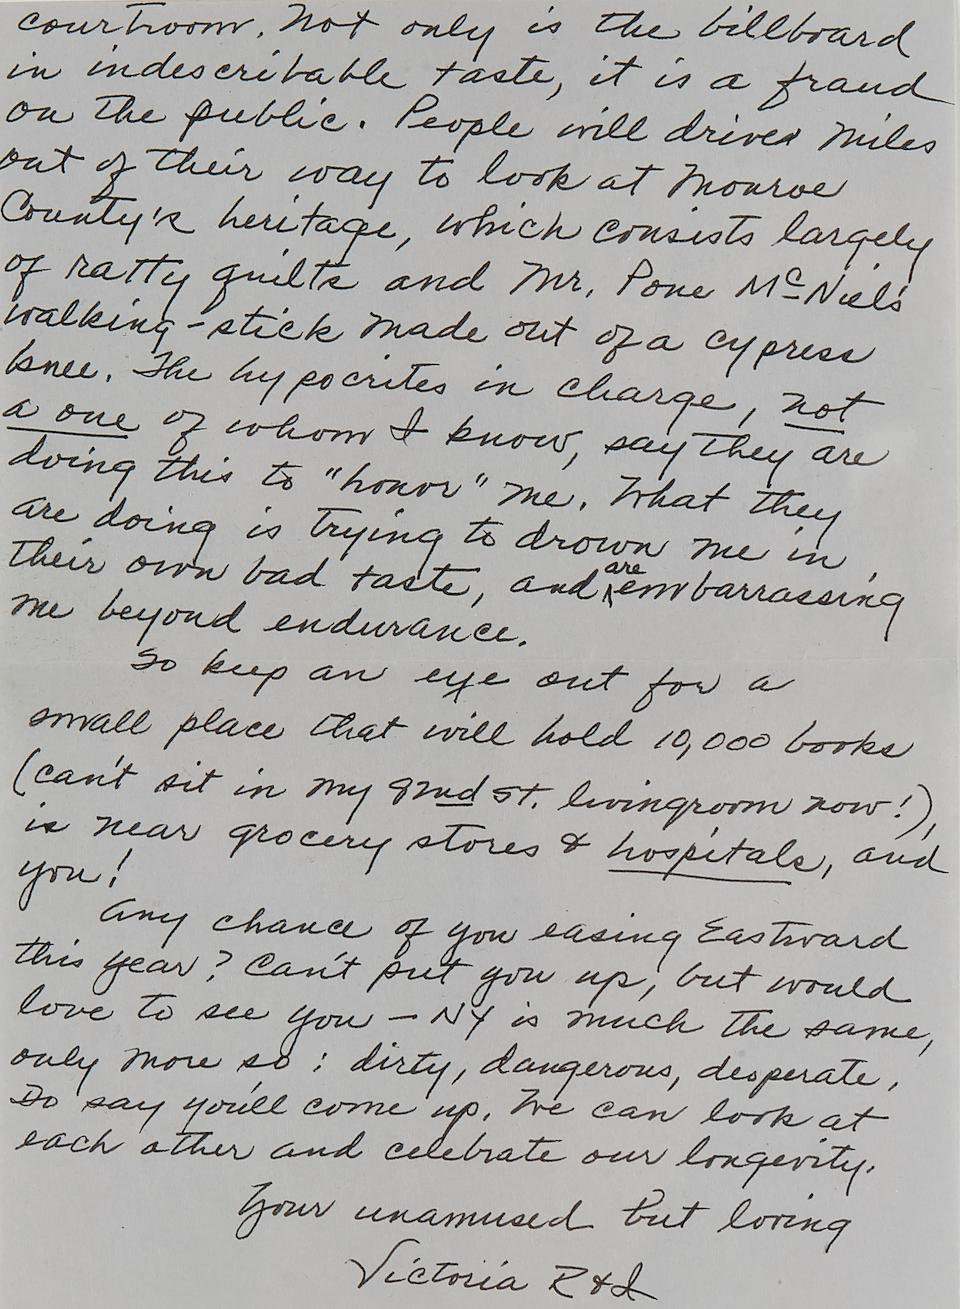 courtroom. Not only is the billboard
in indescribable taste, it is a fraud
on the public. People will drive miles
out of their way to look at Monroe
County's heritage, which consists largely
of ratty quilts and Mr. Pone McNiel's
walking-stick made out of a cypress
knee. The hypocrites in charge, not
a one of whom I know, say they are
doing this to "honor" me. What they
are doing is trying to drown me in
their own bad taste, and are embarrassing
me beyond endurance.
So keep an eye out for a
small place that will hold 10,000 books
(can't sit in my 82nd St. livingroom now!),
is near grocery stores & hospitals, and
you!
Any chance of you easing Eastward
this year? Can't put you up, but would
love to see you – NY is much the same,
only more so: dirty, dangerous, desperate.
Do say you'll come up. We can look at
each other and celebrate our longevity.
Your unamused but loving
Victoria R & I